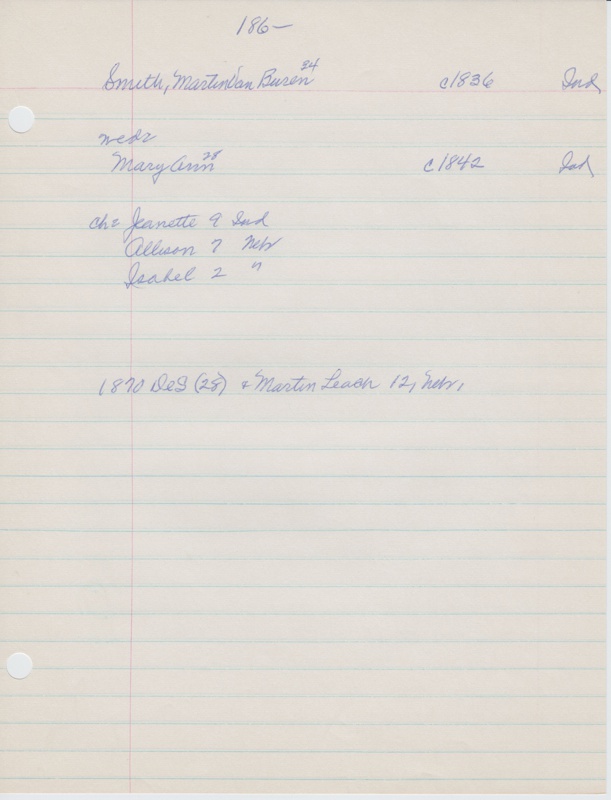 186-
Smith, Martin Van Buren 34 c1836 Ind
wed:
Mary Ann 28 c1842 Ind
ch: Jeanette 9 Ind
Allison 7 Nebr
Isabel 2 "
1870 DeS (28) & Martin Leach 12, Nebr,